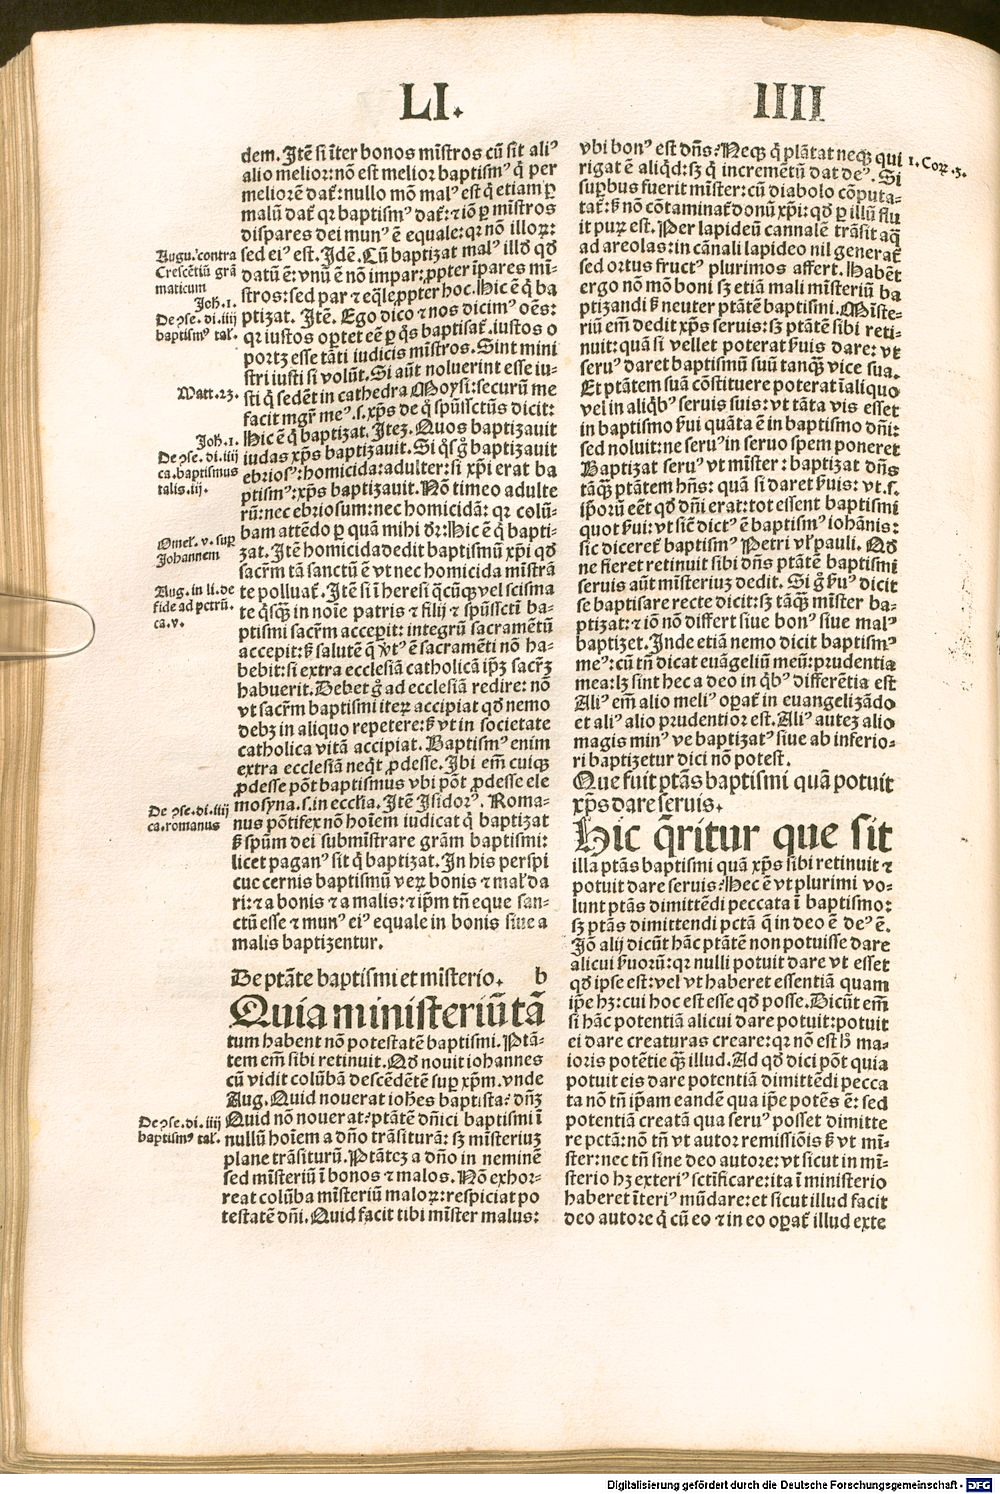 LI.
IIII
dem. Itē si īter bonos mīstros cū sit aliꝰ
alio melior: nō est melior baptismꝰ q̇ per
meliorē dat̄: nullo mō malꝰ est q̇ etiam ꝑ
malū dat̄ qꝛ baptismꝰ dat̄: ⁊ iō ꝑ mīstros
dispares dei munꝰ ē equale: qꝛ nō illoꝝ:
sed eiꝰ est. Idē. Cū baptizat malꝰ illd̄ qd̄
datū ē: vnū ē nō impar: ꝓpter īpares mī-
stros: sed par ⁊ eq̄le ꝓpter hoc. Hic ē q̇ ba
ptizat. Itē. Ego dico ⁊ nos dicimꝰ oēs:
qꝛ iustos oꝑtet eē ꝑ q̊s baptisat̄. iustos o
portꝫ esse tāti iudicis mīstros. Sint mini
stri iusti si volūt. Si aūt noluerint esse iu-
sti q̇ sedēt in cathedra Moysi: securū me
facit mgr̄ meꝰ .s. xp̄s de q̊ spūssctūs dicit:
Hic ē q̇ baptizat. Iteꝫ. Quos baptizauit
iudas xp̄s baptizauit. Si q̊s g̊ baptizauit
ebriosꝰ: homicida: adulter: si xp̄i erat ba
ptismꝰ: xp̄s baptizauit. Nō timeo adulte
rū: nec ebriosum: nec homicidā: qꝛ colū-
bam attēdo ꝑ quā mihi dr̄: Hic ē q̇ bapti-
zat. Itē homicida dedit baptismū xp̄i qd̄
sacr̄m tā sanctū ē vt nec homicida mīstrā
te polluat̄. Itē si ī heresi q̄cūqꝫ vel scisma
te q̊sqꝫ in noīe patris ⁊ filij ⁊ spūssctī ba-
ptismi sacr̄m accepit: integrū sacramētū
accepit: sꝫ salutē q̄ v̇tꝰ ē sacramēti nō ha-
bebit: si extra ecclesiā catholicā ip̄ꝫ sacr̄ꝫ
habuerit. Debet g̊ ad ecclesiā redire: nō
vt sacr̄m baptismi iteꝝ accipiat qd̄ nemo
debꝫ in aliquo repetere: sꝫ vt in societate
catholica vitā accipiat. Baptismꝰ enim
extra ecclesiā neq̄t ꝓdesse. Ibi em̄ cuiqꝫ
ꝓdesse pōt baptismus vbi pōt ꝓdesse ele
mosyna .s. in eccl̄ia. Itē Isidorꝰ. Roma-
nus pōtifex nō hoīem iudicat q̇ baptizat
sꝫ spūm dei submistrare grām baptismi:
licet paganꝰ sit q̇ baptizat. In his perspi
cue cernis baptismū veꝝ bonis ⁊ mal̄ da
ri: ⁊ a bonis ⁊ a malis: ⁊ ip̄m tn̄ eque san-
ctū esse ⁊ munꝰ eiꝰ equale in bonis siue a
malis baptizentur.
De ptāte baptismi et mīsterio. b
Quia ministeriū tā
tum habent nō potestatē baptismi. Ptā-
tem em̄ sibi retinuit. Qd̄ nouit iohannes
cū vidit colūbā descēdētē suꝑ xp̄m. vnde
Aug. Quid nouerat ioh̄es baptista? dn̄ꝫ
Quid nō nouerat? ptātē dn̄ici baptismi ī
nullū hoīem a dn̄o trāsiturā: sꝫ mīsteriuꝫ
plane trāsiturū. Ptāteꝫ a dn̄o in neminē
sed mīsteriū ī bonos ⁊ malos. Nō exhor-
reat colūba mīsteriū maloꝝ: respiciat po
testatē dn̄i. Quid facit tibi mīster malus:
Augu. contra
Crescētiū grā
maticum
Joh̄. 1.
De ꝯse. di. iiij
baptismꝰ tal̄.
Matt. 23.
Joh̄. 1.
De ꝯse. di. iiij
ca. baptismus
talis. iij.
Omel̄. v. suꝑ
Johannem
Aug. in li. de
fide ad petrū.
ca. v.
De ꝯse. di. iiij
ca. romanus
De ꝯse. di. iiij
baptismꝰ tal̄.
vbi bonꝰ est dn̄s? Neqꝫ q̇ plātat neqꝫ qui
rigat ē aliq̇d: sꝫ q̇ incremētū dat deꝰ. Si
suꝑbus fuerit mīster: cū diabolo cōputa-
tat̄: sꝫ nō cōtaminat̄ donū xp̄i: qd̄ ꝑ illū flu
it puꝝ est. Per lapideū cannalē trāsit aq̄
ad areolas: in cānali lapideo nil generat̄
sed ortus fructꝰ plurimos affert. Habēt
ergo nō mō boni sꝫ etiā mali mīsteriū ba
ptizandi sꝫ neuter ptātē baptismi. Mīste-
riū em̄ dedit xp̄s seruis: sꝫ ptātē sibi reti-
nuit: quā si vellet poterat ẜuis dare: vt
seruꝰ daret baptismū suū tanqꝫ vice sua.
Et ptātem suā cōstituere poterat ī aliquo
vel in aliq̇bꝰ seruis suis: vt tāta vis esset
in baptismo ẜui quāta ē in baptismo dn̄i:
sed noluit: ne seruꝰ in seruo spem poneret
Baptizat seruꝰ vt mīster: baptizat dn̄s
tāqꝫ ptātem hn̄s: quā si daret ẜuis: vt .s.
ip̄orū eēt qd̄ dn̄i erat: tot essent baptismi
quot ẜui: vt sic̄ dictꝰ ē baptismꝰ iohānis:
sic diceret̄ baptismꝰ Petri vl̄ pauli. Qd̄
ne fieret retinuit sibi dn̄s ptātē baptismi
seruis aūt mīsteriuꝫ dedit. Si g̊ ẜuꝰ dicit
se baptisare recte dicit: sꝫ tāqꝫ mīster ba-
ptizat: ⁊ iō nō differt siue bonꝰ siue malꝰ
baptizet. Inde etiā nemo dicit baptismꝰ
meꝰ: cū tn̄ dicat euāgeliū meū: prudentia
mea: lꝫ sint hec a deo in q̇bꝰ differētia est
Aliꝰ em̄ alio meliꝰ oꝑat̄ in euangelizādo
et aliꝰ alio prudentior est. Aliꝰ autez alio
magis minꝰ ve baptizatꝰ siue ab inferio-
ri baptizetur dici nō potest.
Que fuit ptās baptismi quā potuit
xp̄s dare seruis.
Hic q̄ritur que sit
illa ptās baptismi quā xp̄s sibi retinuit ⁊
potuit dare seruis? Hec ē vt plurimi vo-
lunt ptās dimittēdi peccata ī baptismo:
sꝫ ptās dimittendi pctā q̄ in deo ē deꝰ ē.
Iō alij dicūt hāc ptātē non potuisse dare
alicui ẜuorū: qꝛ nulli potuit dare vt esset
qd̄ ipse est: vel vt haberet essentiā quam
ip̄e hꝫ: cui hoc est esse qd̄ posse. Dicūt em̄
si hāc potentiā alicui dare potuit: potuit
ei dare creaturas creare: qꝛ nō est h̄ ma-
ioris potētie qꝫ illud. Ad qd̄ dici pōt quia
potuit eis dare potentiā dimittēdi pecca
ta nō tn̄ ip̄am eandē qua ip̄e potēs ē: sed
potentiā creatā qua seruꝰ posset dimitte
re pctā: nō tn̄ vt autor remissiōis sꝫ vt mī-
ster: nec tn̄ sine deo autore: vt sicut in mī-
sterio hꝫ exteriꝰ sctīficare: ita ī ministerio
haberet īteriꝰ mūdare: et sicut illud facit
deo autore q̇ cū eo ⁊ in eo oꝑat̄ illud exte
1. Coꝝ. 3.
Digitalisierung gefördert durch die Deutsche Forschungsgemeinschaft - DFG